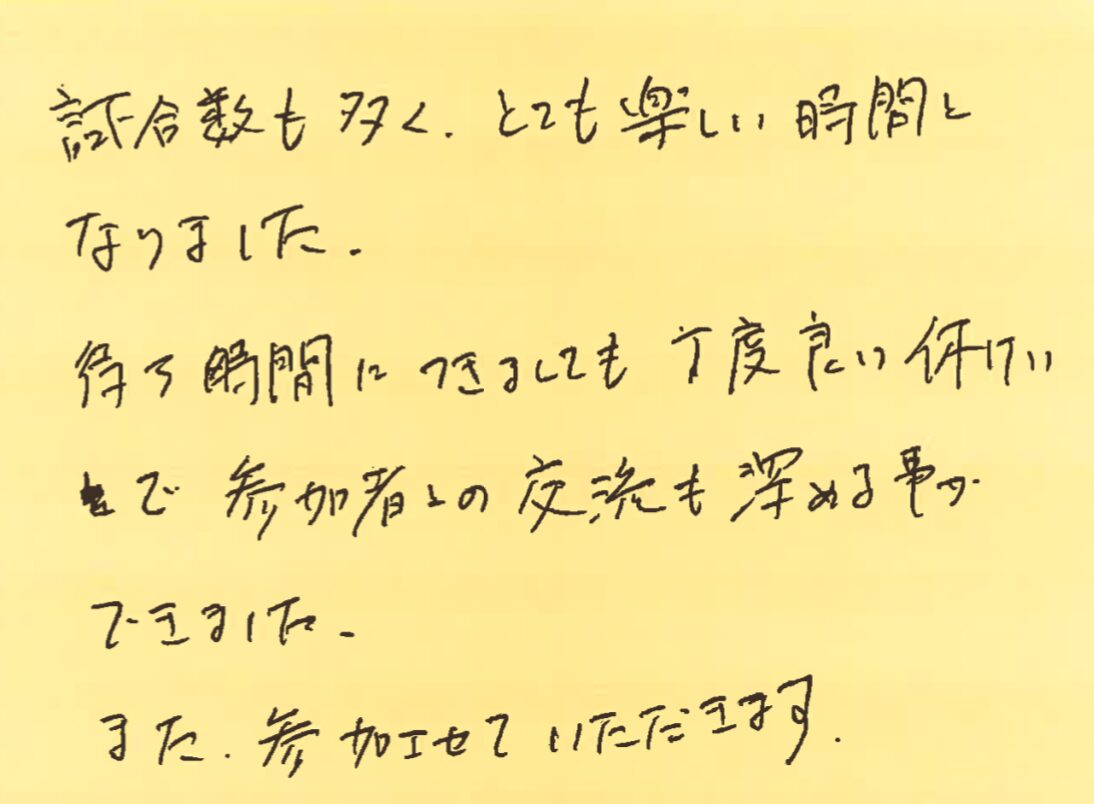 試合数も多く、とても楽しい時間と
なりました。
待ち時間につきましても丁度良い休けい
で参加者との交流も深める事が
できました。
また、参加させていただきます。